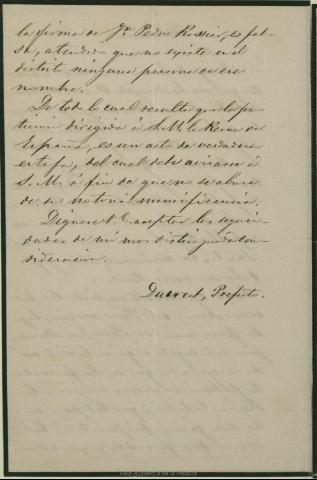 la firma de Jn Pedro Rossier, es fal-
sa, atendido que no existe en el
distrito ninguna persona de ese
nombre.
De todo lo cual resulta que la pe-
ticion dirigida á S. M. la Reina de
España, es un acto de verdadera
estafa, del cual debe avisarse á
S. M. á fin de que no se abuse
de su notoria munificencia.
Dignese V. E. aceptar las seguri-
dades de mi mas distinguida con-
sideracion.
Prefect.